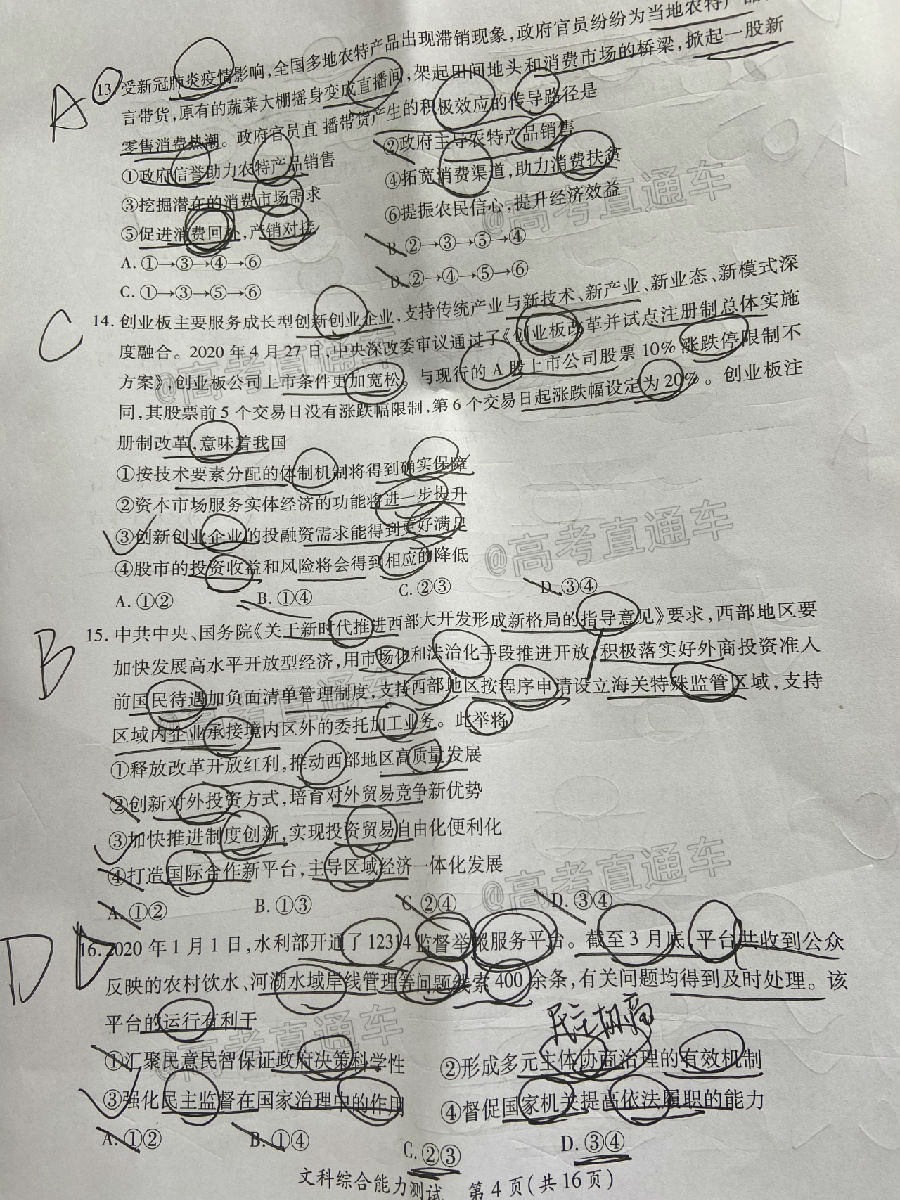 A 13. 受新冠肺炎疫情影响,全国多地农特产品出现滞销现象,政府官员纷纷为当地农特产品
言带货,原有的蔬菜大棚摇身变成直播间,架起田间地头和消费市场的桥梁,掀起一股新
零售消费热潮。政府官员直播带货产生的积极效应的传导路径是
①政府信誉助力农特产品销售 ②政府主导农特产品销售
③挖掘潜在的消费市场需求 ④拓宽消费渠道,助力消费扶贫
⑤促进消费回补,产销对接 ⑥提振农民信心,提升经济效益
A. ①→③→④→⑥ B. ②→③→⑤→④
C. ①→③→⑤→⑥ D. ②→④→⑤→⑥
C 14. 创业板主要服务成长型创新创业企业,支持传统产业与新技术、新产业、新业态、新模式深
度融合。2020年4月27日,中央深改委审议通过了《创业板改革并试点注册制总体实施
方案》,创业板公司上市条件更加宽松。与现行的A股上市公司股票10%涨跌停限制不
同,其股票前5个交易日没有涨跌幅限制,第6个交易日起涨跌幅设定为20%。创业板注
册制改革,意味着我国
①按技术要素分配的体制机制将得到确实保障
②资本市场服务实体经济的功能将进一步提升
③创新创业企业的投融资需求能得到更好满足
④股市的投资收益和风险将会得到相应的降低
A. ①② B. ①④ C. ②③ D. ③④
B 15. 中共中央、国务院《关于新时代推进西部大开发形成新格局的指导意见》要求,西部地区要
加快发展高水平开放型经济,用市场化和法治化手段推进开放,积极落实好外商投资准入
前国民待遇加负面清单管理制度,支持西部地区按程序申请设立海关特殊监管区域,支持
区域内企业承接境内区外的委托加工业务。此举将
①释放改革开放红利,推动西部地区高质量发展
②创新对外投资方式,培育对外贸易竞争新优势
③加快推进制度创新,实现投资贸易自由化便利化
④打造国际合作新平台,主导区域经济一体化发展
A. ①② B. ①③ C. ②④ D. ③④
D D 16. 2020年1月1日,水利部开通了12314监督举报服务平台。截至3月底,平台共收到公众
反映的农村饮水、河湖水域岸线管理等问题线索400余条,有关问题均得到及时处理。该
平台的运行有利于
民主协商
①汇聚民意民智保证政府决策科学性 ②形成多元主体协商治理的有效机制
③强化民主监督在国家治理中的作用 ④督促国家机关提高依法履职的能力
A. ①② B. ①④ C. ②③ D. ③④
文科综合能力测试 第4页(共16页)
@高考直通车
@高考直通车
@高考直通车
高考直通车
@高考直通车
高考直通车